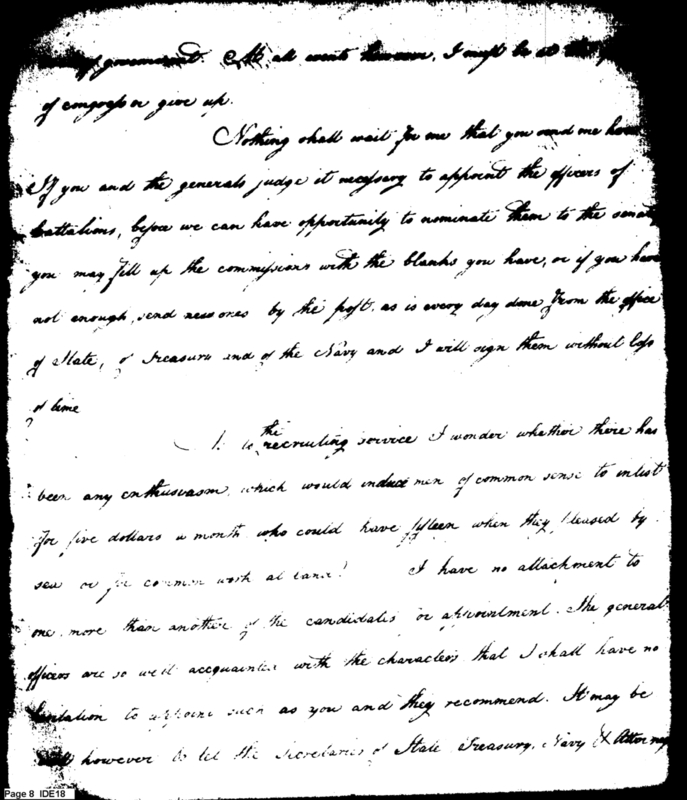 of government. At all events however, I must be at the
of congress or give up.
Nothing shall wait for me that you send me here
If you and the generals judge it necessary to appoint the officers of
battalions, before we can have opportunity to nominate them to the senate
you may fill up the commissions with the blanks you have, or if you have
not enough, send new ones by the post, as is every day done from the office
of State, of Treasury and of the Navy and I will sign them without loss
of time
As to the recruiting service I wonder whether there has
been any enthusiasm, which would induce men of common sense to inlist
for five dollars a month who could have fifteen when they pleased by
sea or for common work at land? I have no attachment to
one more than another of the candidates for appointment. The general
officers are so well acquainted with the characters that I shall have no
hesitation to appoint such as you and they recommend. It may be
well however to let the Secretaries of State Treasury, Navy & Attorney
Page 8 IDE18